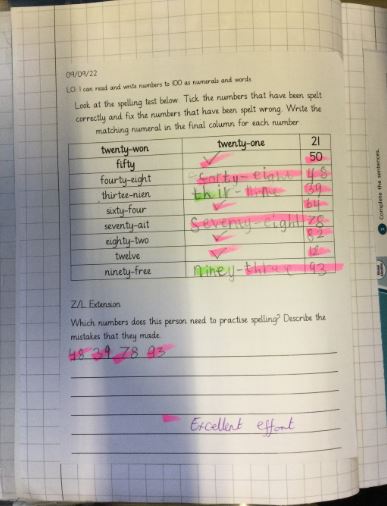 09/09/22
L.O: I can read and write numbers to 100 as numerals and words
Look at the spelling test below. Tick the numbers that have been spelt
correctly and fix the numbers that have been spelt wrong. Write the
matching numeral in the final column for each number
twenty-won twenty-one 21
fifty ✓ 50
fourty-eight forty-eight 48
thirtee-nien thir-nine 39
sixty-four ✓ 64
seventy-ait seventy-eight 78
eighty-two ✓ 82
twelve ✓ 12
ninety-free niney-three 93
Z/L Extension
Which numbers does this person need to practise spelling? Describe the
mistakes that they made.
48 39 78 93
Excellent effort
complete the sentences.